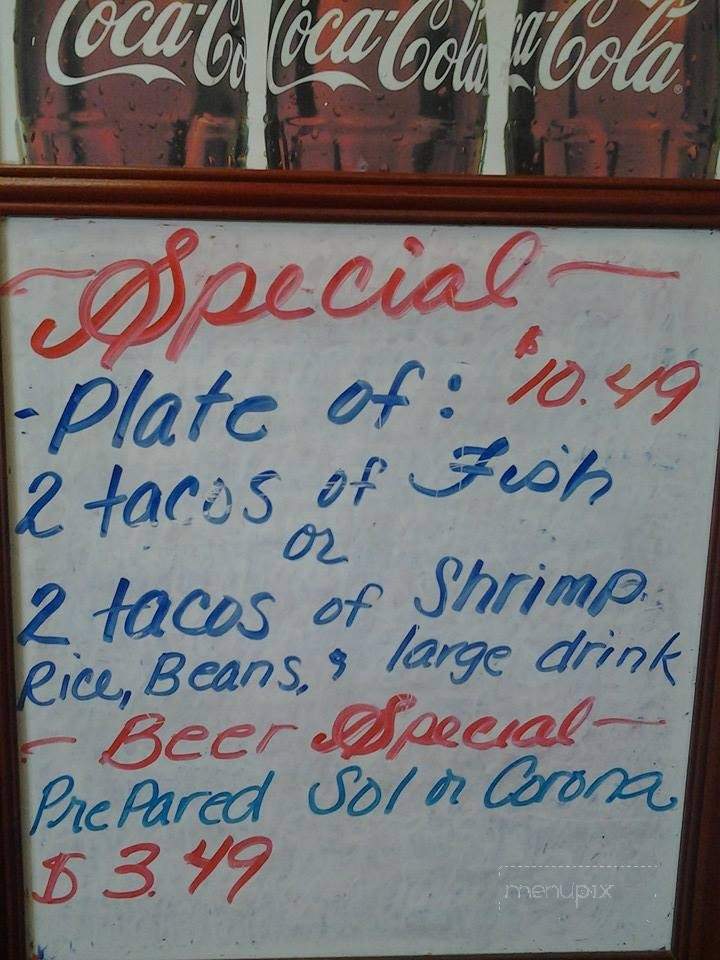 Coca-Co Coca-Cola ca-Cola
~Special~
$10.49
-Plate of:
2 tacos of Fish
or
2 tacos of Shrimp
Rice, Beans, & large drink
- Beer Special -
Prepared Sol or Corona
$3.49
menupix